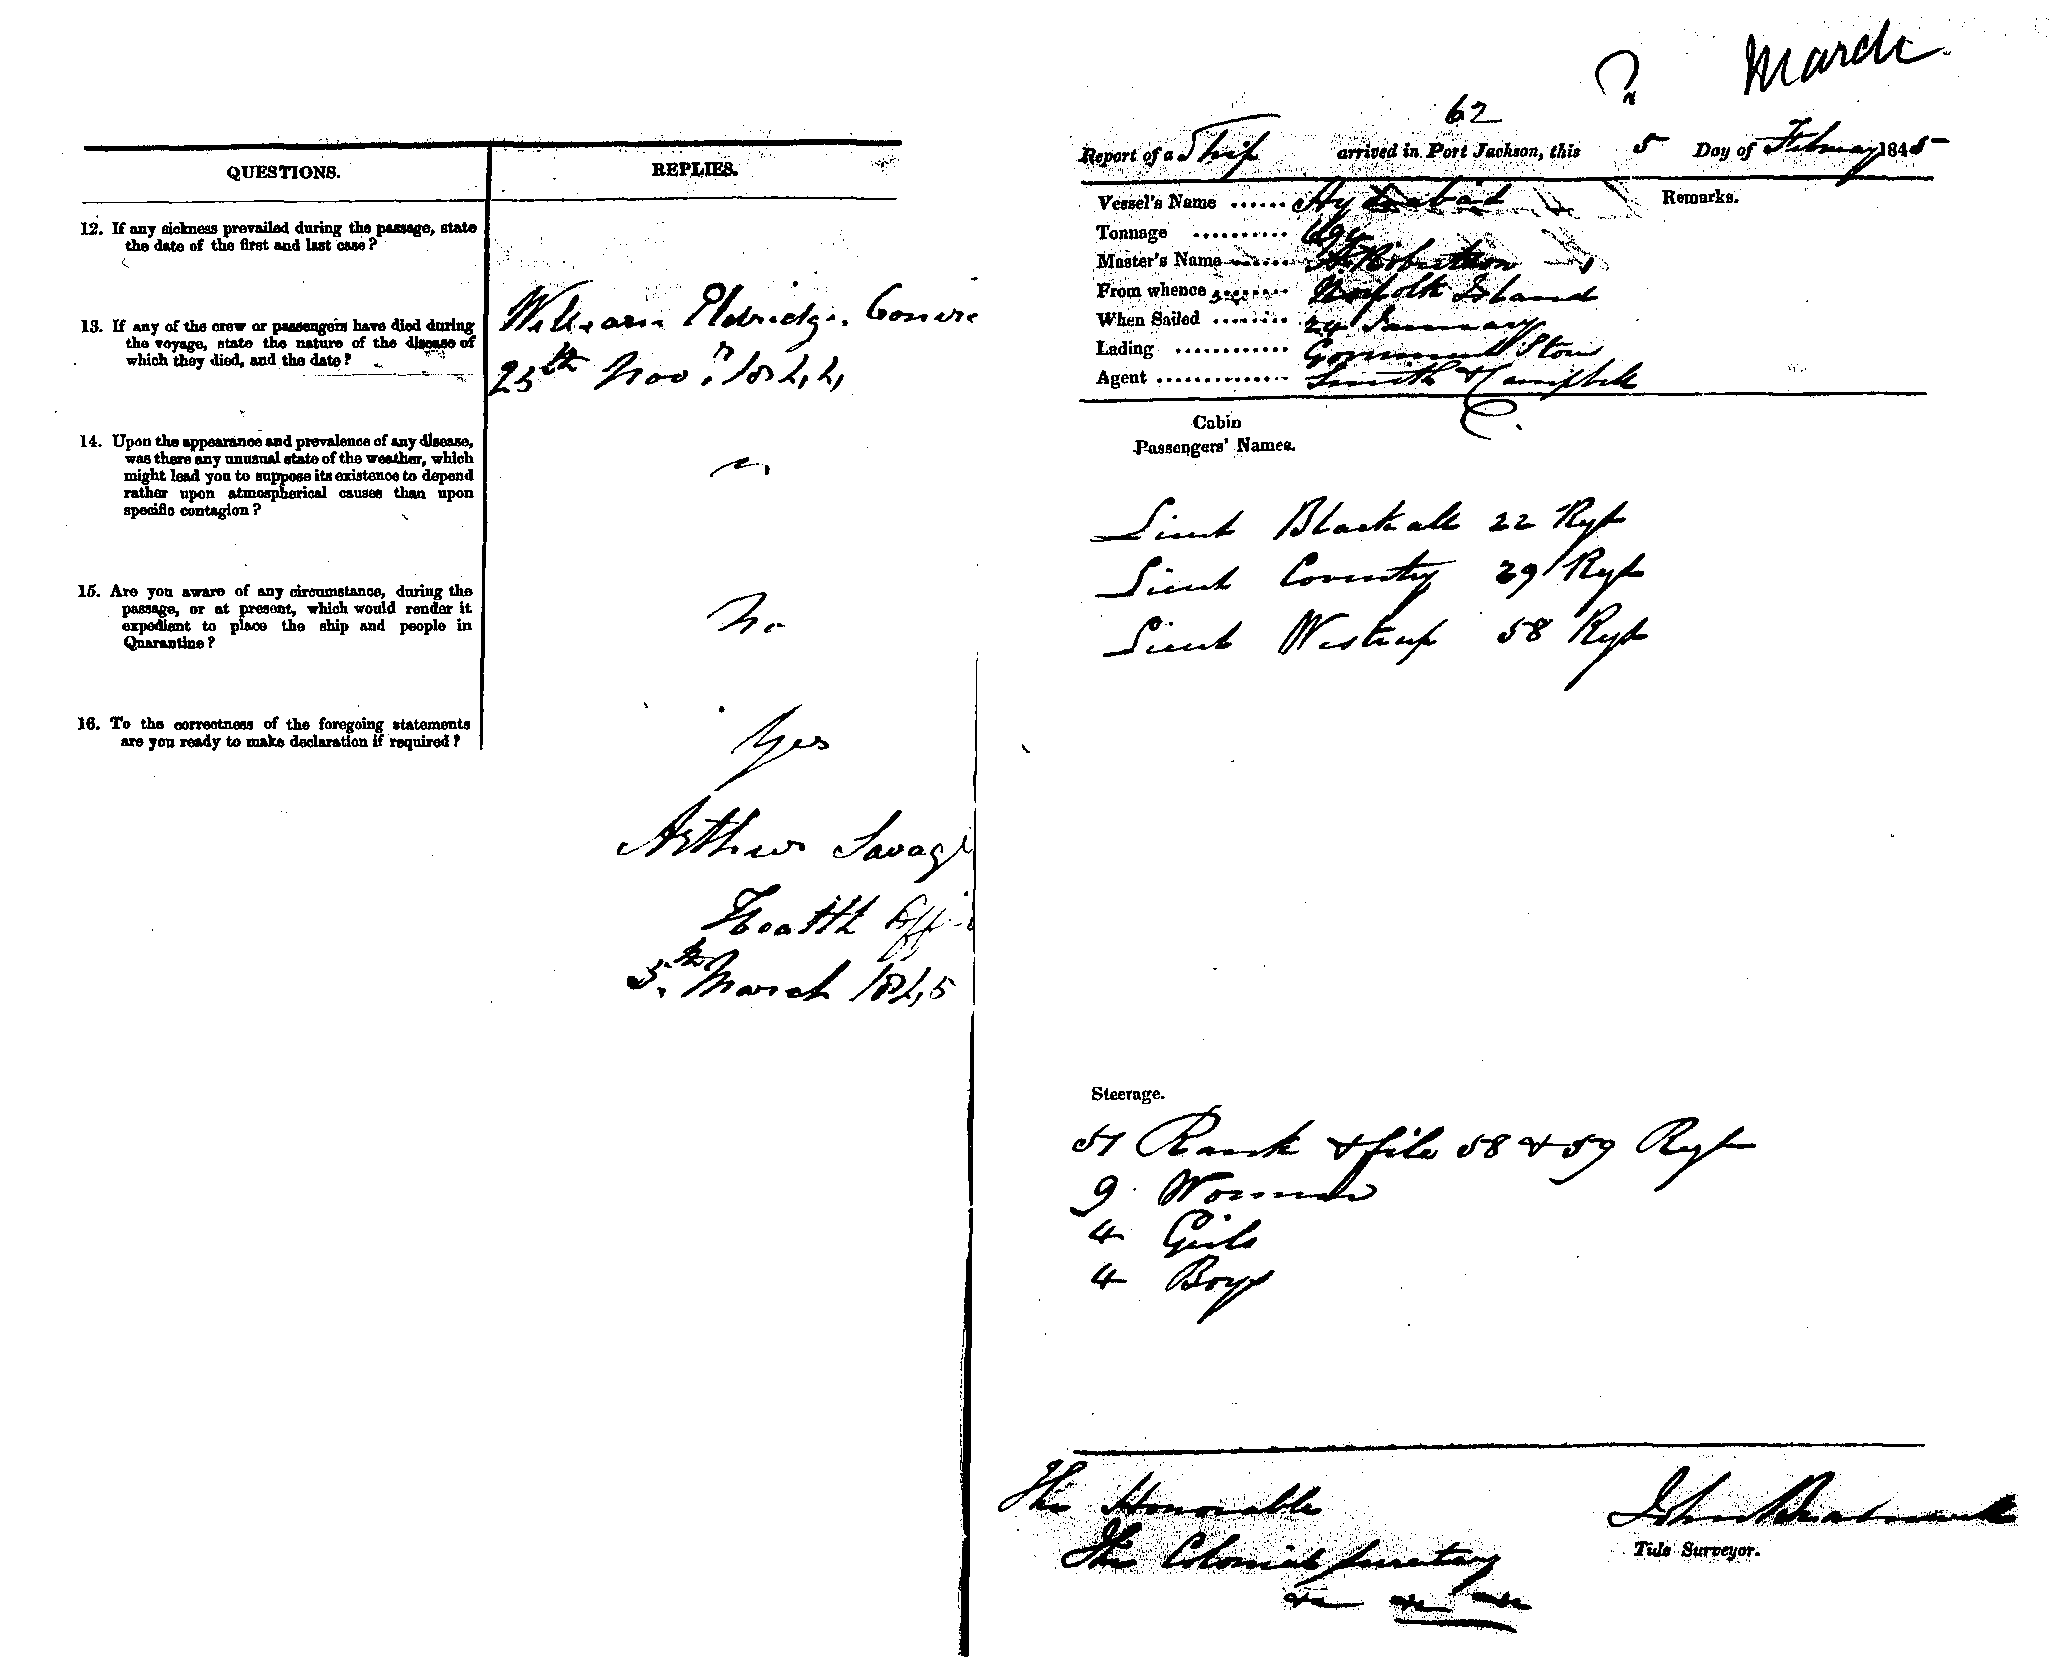 QUESTIONS. REPLIES.
12. If any sickness prevailed during the passage, state
the date of the first and last case?
13. If any of the crew or passengers have died during
the voyage, state the nature of the disease of
which they died, and the date?
William Eldridge, Convic
25th Novr. 1844
14. Upon the appearance and prevalence of any disease,
was there any unusual state of the weather, which
might lead you to suppose its existence to depend
rather upon atmospherical causes than upon
specific contagion?
15. Are you aware of any circumstance, during the
passage, or at present, which would render it
expedient to place the ship and people in
Quarantine?
No
16. To the correctness of the foregoing statements
are you ready to make declaration if required?
Yes
Arthur Savage
Health Offic
5th March 1845
? March
62
Report of a Ship arrived in Port Jackson, this 5 Day of February 1845
Vessel's Name ...... Hydrabad
Remarks.
Tonnage .......... 694
Master's Name ....... Robertson
From whence ........ Norfolk Island
When Sailed ........ 24 January
Lading ............ Government Stores
Agent .............. Smith & Campbell
Cabin
Passengers' Names.
Lieut Blackall 22 Rgt
Lieut Coventry 29 Rgt
Lieut Westrup 58 Rgt
Steerage.
51 Rank & file 58 & 59 Rgt
9 Women
4 Girls
4 Boys
The Honorable
The Colonial Secretary
&c &c &c
John
Tide Surveyor.